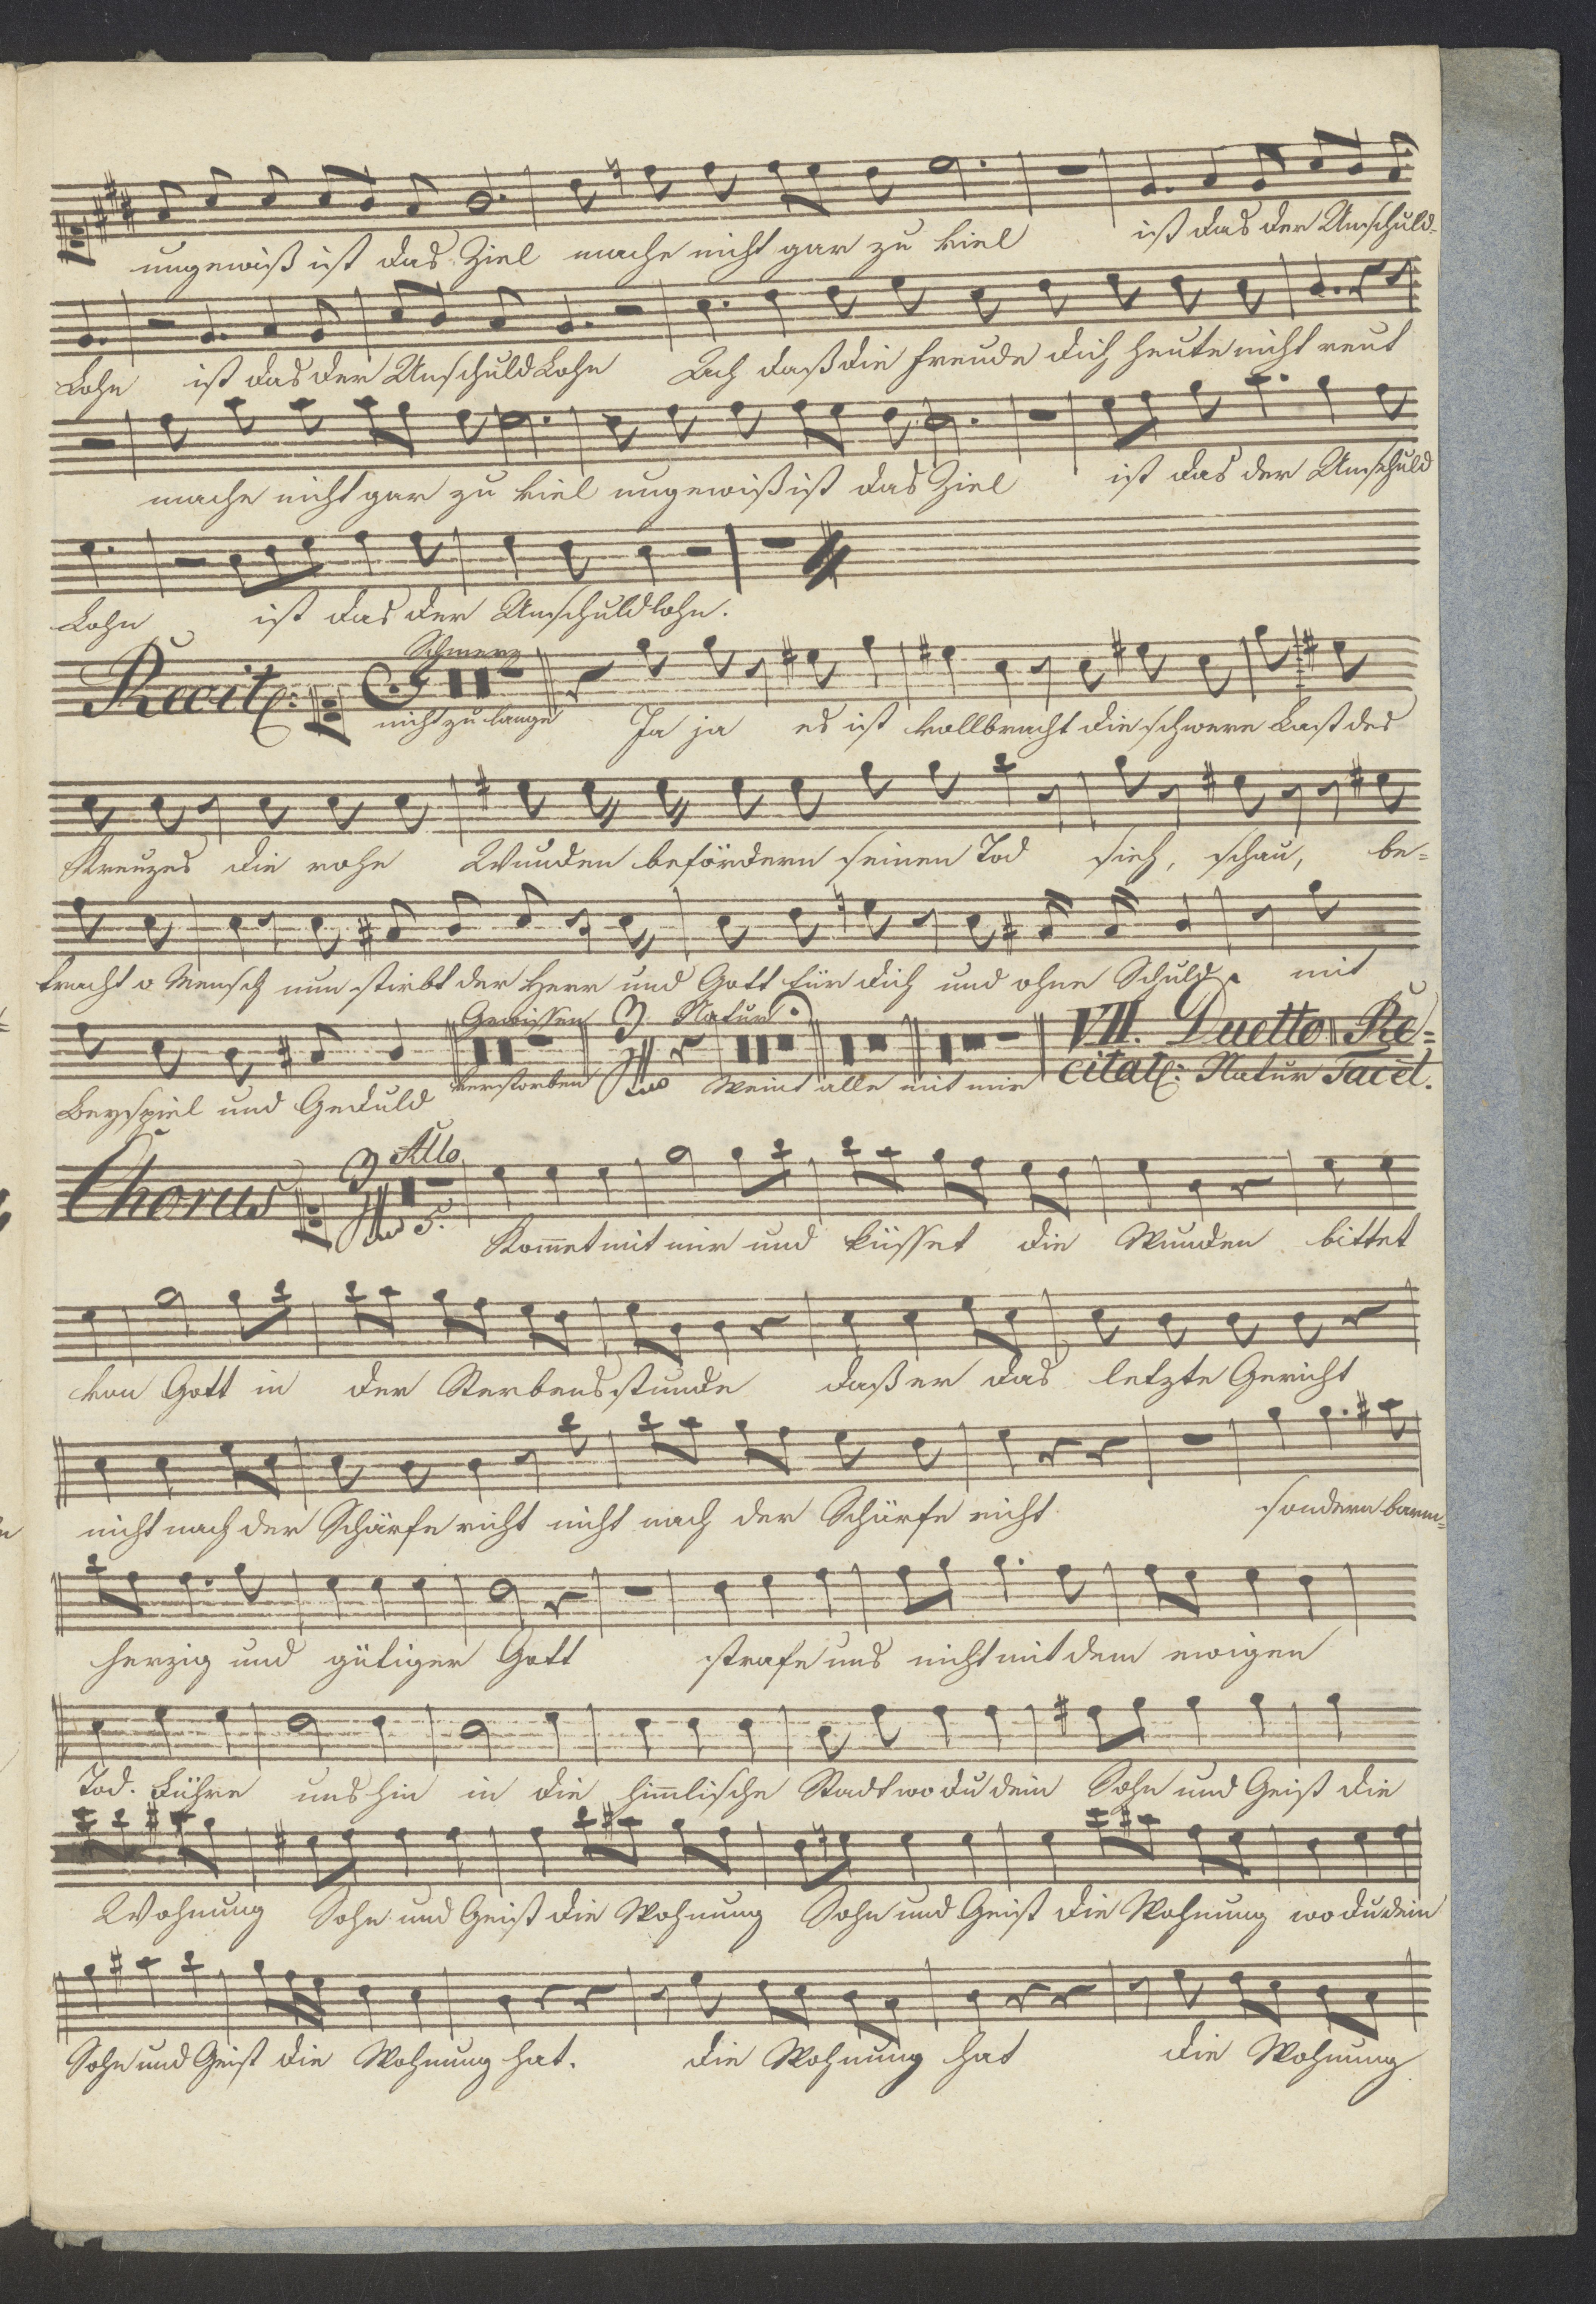 ungewiß ist das Ziel mache nicht gar zu viel ist das der Unschuld-
Lohn ist das der Unschuld Lohn Ach daß die Freude dich heute nicht reut
mache nicht gar zu viel ungewiß ist das Ziel ist das der Unschuld
Lohn ist das der Unschuld lohn.
Schmerz
Recit:
nicht zu lange Ja ja es ist vollbracht die schwere Last des
Kreuzes die rohe Wunden befördern seinen Tod sieh, schau, be=
tracht o Mensch nun stirbt der Herr und Gott für dich und ohne Schuld mit
Gewissen 3 Natur VII. Duetto Re=
Beyspiel und Geduld verstorben Weint alle mit mir citat: Natur Tacet.
Allo
Chorus 3 5.
Kom̄et mit mir und küsset die Wunden bittet
von Gott in der Sterbensstunde daß er das letzte Gericht
nicht nach der Schärfe richt nicht nach der Schärfe richt sondern barm=
herzig und gütiger Gott strafe uns nicht mit dem ewigen
Tod. Führe uns hin in die him̄lische Stadt wo du dein Sohn und Geist die
Wohnung Sohn und Geist die Wohnung Sohn und Geist die Wohnung wo du dein
Sohn und Geist die Wohnung hat. die Wohnung hat die Wohnung